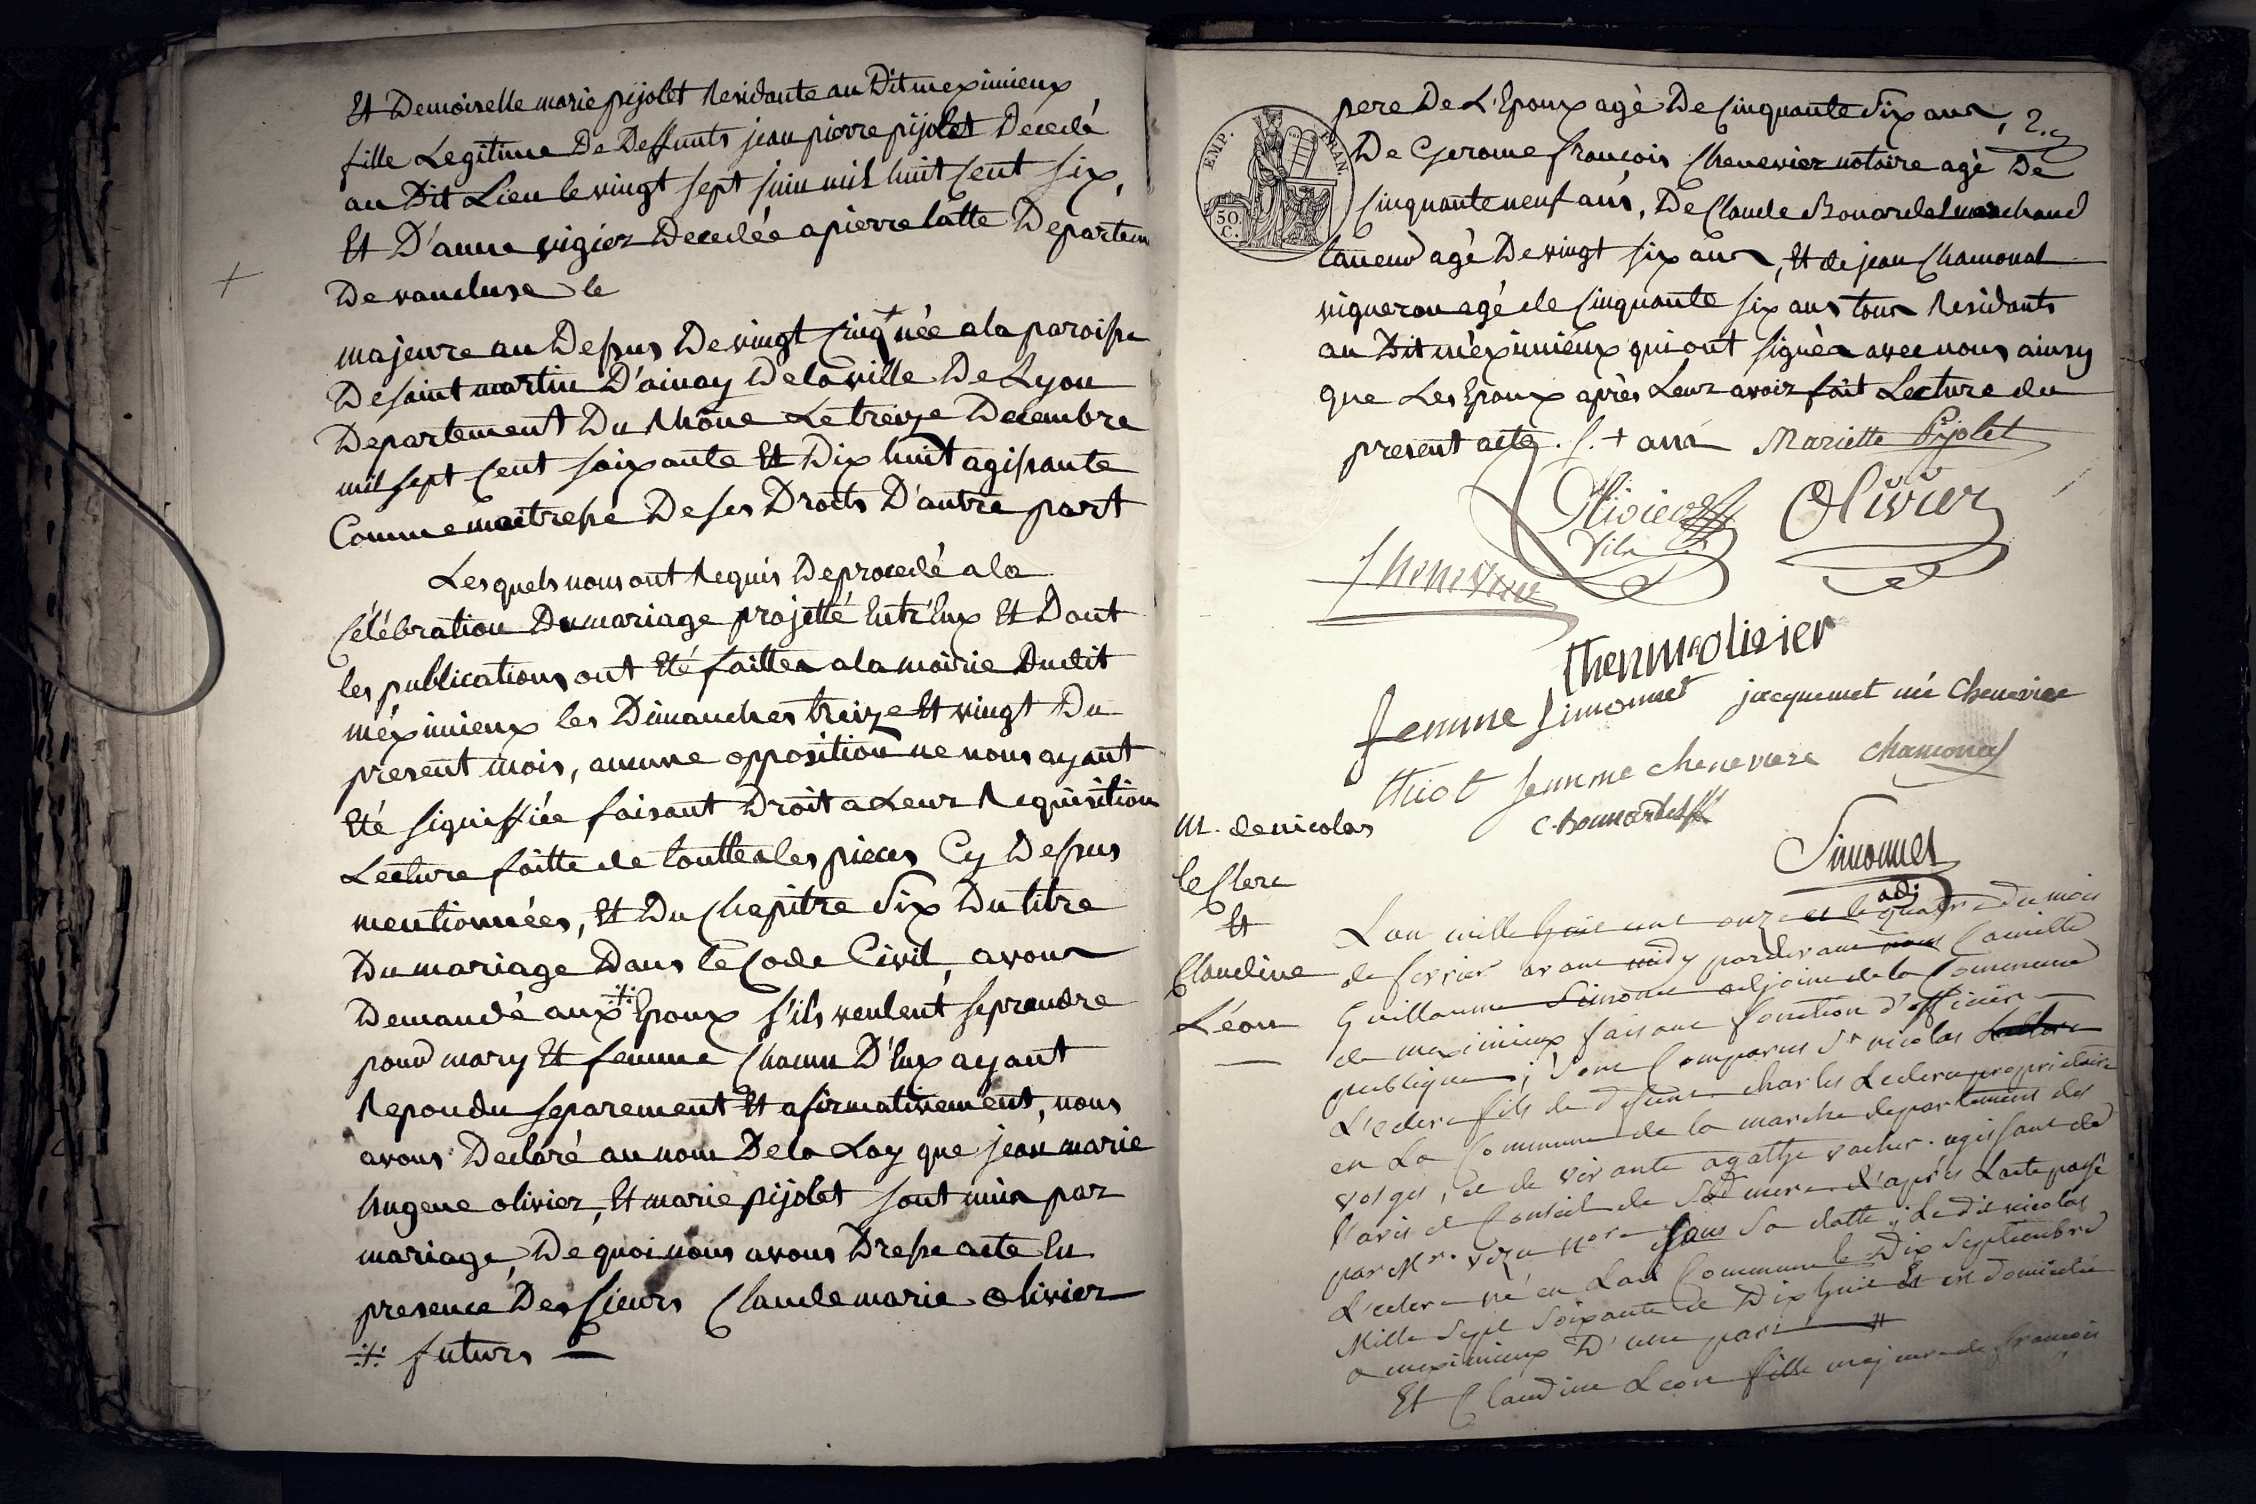 Et Demoiselle marie pijolet Residante au Dit meximieux
fille Legitime De Deffunts jean pierre pijolet Decedé
au Dit Lieu le vingt sept juin mil huit Cent six,
Et D'anne vigier Decedée a pierre latte Departem
De vaucluse le
majeure au Dessus De vingt Cinq + née a la paroisse
De saint martin D'ainay De la ville De Lyon
Departement Du Rhône Le treize Decembre
mil sept Cent soixante Et Dix huit agissante
Comme maitresse De ses Droits D'autre part
Lesquels nous ont Requis De procedé a la
Célébration Du mariage projetté Entr'Eux Et Dont
les publications ont Eté faittes a la mairie Dudit
méximieux les Dimanches treize Et vingt Du
present mois, aucune opposition ne nous ayant
Eté signiffiée faisant Droit a Leur Requisition
Lecture faitte de touttes les pieces Cy Dessus
mentionnées, Et Du Chapitre Six Du titre
Du mariage Dans le Code Civil, avons
Demandé aux ·/· Epoux s'ils veulent se prendre
pour mary Et femme Chacun D'Eux ayant
Repondu separement Et afirmativement, nous
avons Declaré au nom De la Loy que jean marie
Eugene olivier, Et marie pijolet sont unis par
mariage, De quoi nous avons Dressé acte En
presence Des sieurs Claude marie olivier
·/· futurs —
EMP. FRAN.
50
C.
pere De L'Epoux agé De Cinquante Six ans,
De Gerome françois Chenevier notaire agé De
Cinquante neuf ans, De Claude Bonardel marchand
taneur agé De vingt six ans, Et de jean Chamonal
vigneron agé de Cinquante six ans tous Residants
au Dit méximieux qui ont signés avec nous ainsy
que Les Epoux après Leur avoir fait Lecture du
present acte. + ans Mariette Pijolet
Olivier fils Olivier
Chenevier
femme Simonnet jacquemet née Chenevier
thiot femme chenevier Chamonal
C. Bonnardel
Simonnet
adj
M. de nicolas
le Clerc
Et
Claudine
Léon
L'an mille huit cent onze et le quatre du mois
de fevrier avant midy pardevant nous Camille
Guillaume Simonet adjoint de la Commune
de meximieux faisant fonction d'officier
publique; Sont Comparus Sr nicolas
L'eclerc fils de defunt charles Leclerc propriétaire
en La Commune de la marche departement des
vosges, et de vivante agathe vacher. agissant de
l'avis et Conseil de Sad mere d'après L'acte passé
par Mr. not. sous sa datte; Le dit nicolas
L'eclerc né en Lad Commune le Dix Septembre
Mille Sept Soixante et Dix huit Et est domicilié
a meximieux D'une part
Et Claudine Leon fille majeure de françois